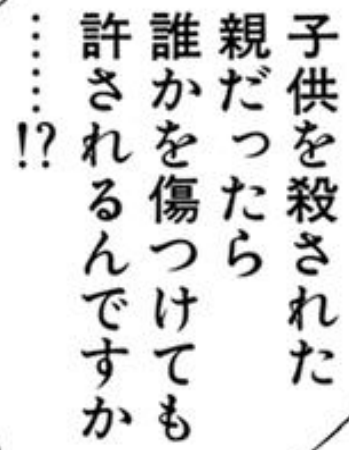 子供を殺された
親だったら
誰かを傷つけても
許されるんですか
……!?